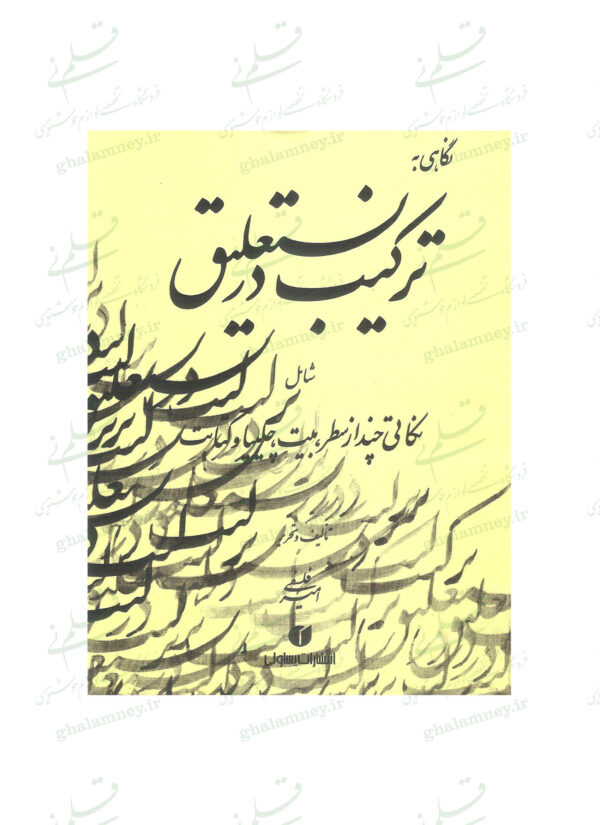 نگاهی به
ترکیب در نستعلیق
شامل
نکاتی چند از سطر، بیت، چلیپا و کتابت
تألیف و تحریر
امیر فلسفی
انتشارات یساولی
قلم نی
فروشگاه تخصصی لوازم خوشنویسی
ghalamney.ir